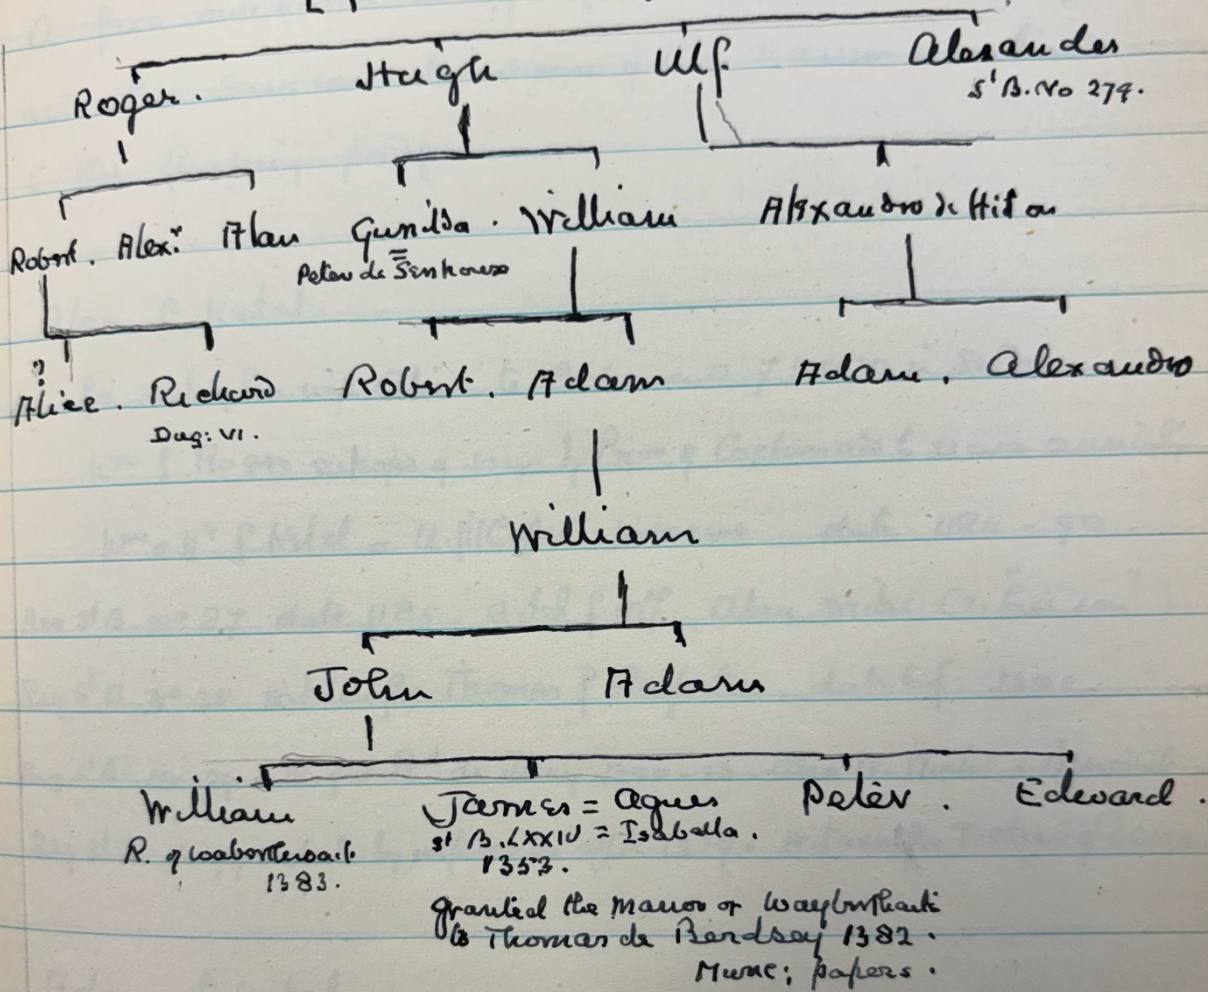 Roger. Hugh Ulf. Alexander
St B. No 279.
Robert. Alexr. Alan Gunilda. William Alexandro de Hilton
= Peter de Senhouse
?
Alice. Richard Robert. Adam Adam. Alexandro
Dug: VI.
William
John Adam
William James = Agnes Peter. Edward.
R. of Waborthwaite St B. LXXIV = Isabella.
1383. 1353.
granted the Manor of Wayburthwait
to Thomas de Berdsey 1382.
Munc; papers.